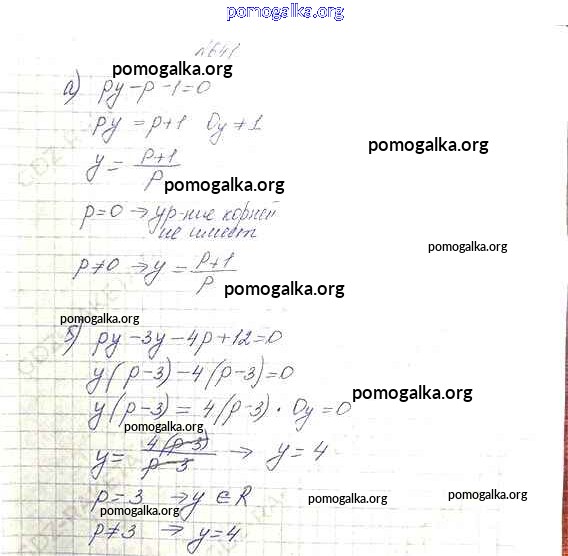 pomogalka.org
№641
pomogalka.org
а) py-p-1=0
pomogalka.org
py = p+1 0y≠1
y = p+1/p
pomogalka.org
p=0 → ур-ние корней
не имеет
pomogalka.org
p≠0 → y = p+1/p
pomogalka.org
pomogalka.org
б) py-3y-4p+12=0
y(p-3)-4(p-3)=0
pomogalka.org
y(p-3) = 4(p-3) · 0y=0
pomogalka.org
y = 4(p-3)/p-3 → y=4
p=3 → y∈R
pomogalka.org
pomogalka.org
pomogalka.org
p≠3 → y=4